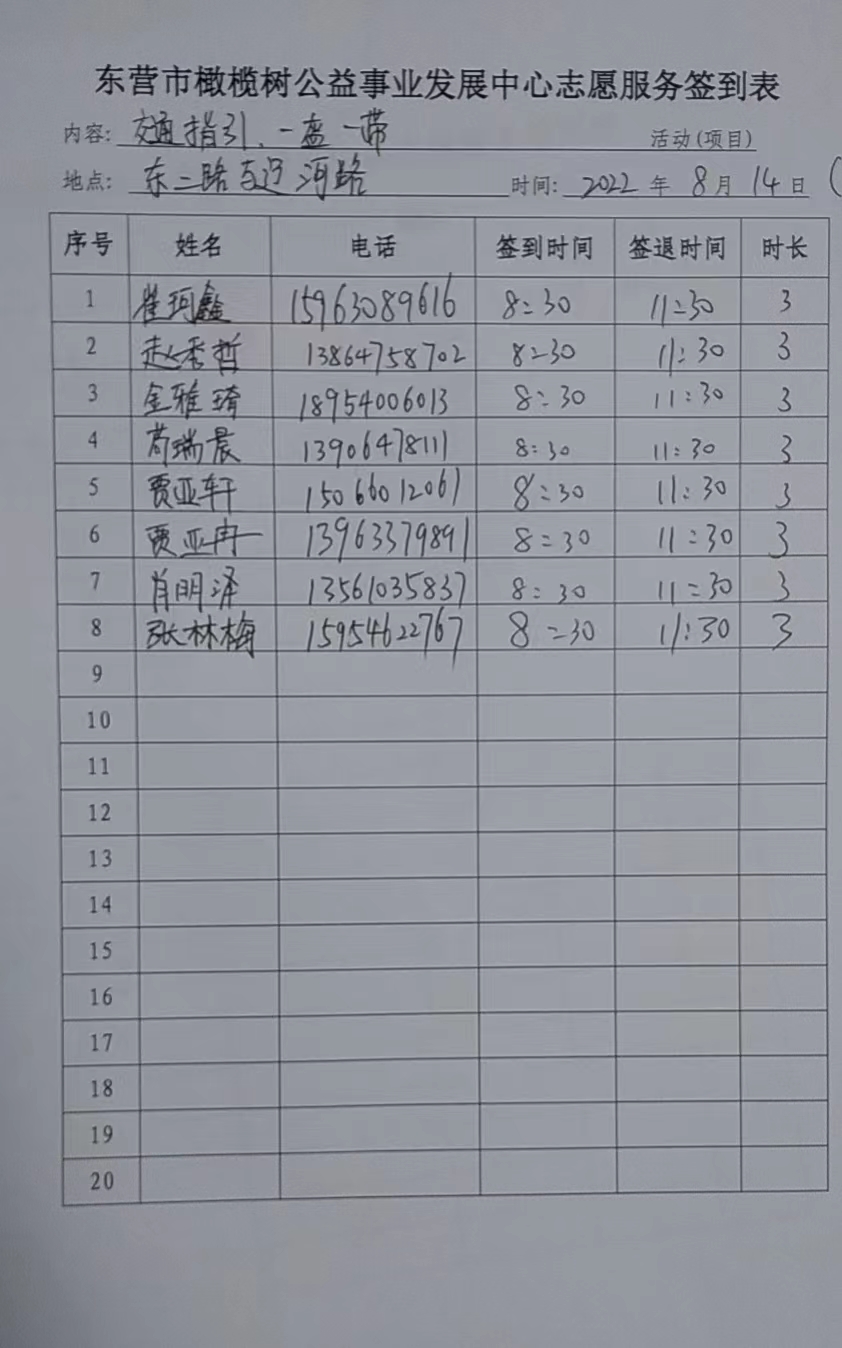 东营市橄榄树公益事业发展中心志愿服务签到表
内容: 交通指引、一盔一带 活动(项目)
地点: 东二路与运河路 时间: 2022 年 8 月 14 日 (
序号 姓名 电话 签到时间 签退时间 时长
1 崔珂鑫 15963089616 8:30 11:30 3
2 赵秀哲 13864758702 8:30 11:30 3
3 金雅琦 18954006013 8:30 11:30 3
4 苟瑞晨 13906478111 8:30 11:30 3
5 贾亚轩 15066012061 8:30 11:30 3
6 贾亚冉 13963379891 8:30 11:30 3
7 肖明泽 13561035837 8:30 11:30 3
8 张林梅 15954622767 8:30 11:30 3
9
10
11
12
13
14
15
16
17
18
19
20